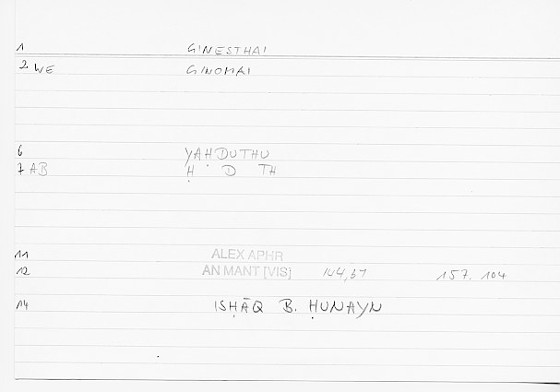 1 GINESTHAI
2 WE GINOMAI
6 YAḤDUTHU
7 AB Ḥ D TH
11 ALEX APHR
12 AN MANT [VIS] 144,31 157.104
14 ISḤĀQ B. ḤUNAYN